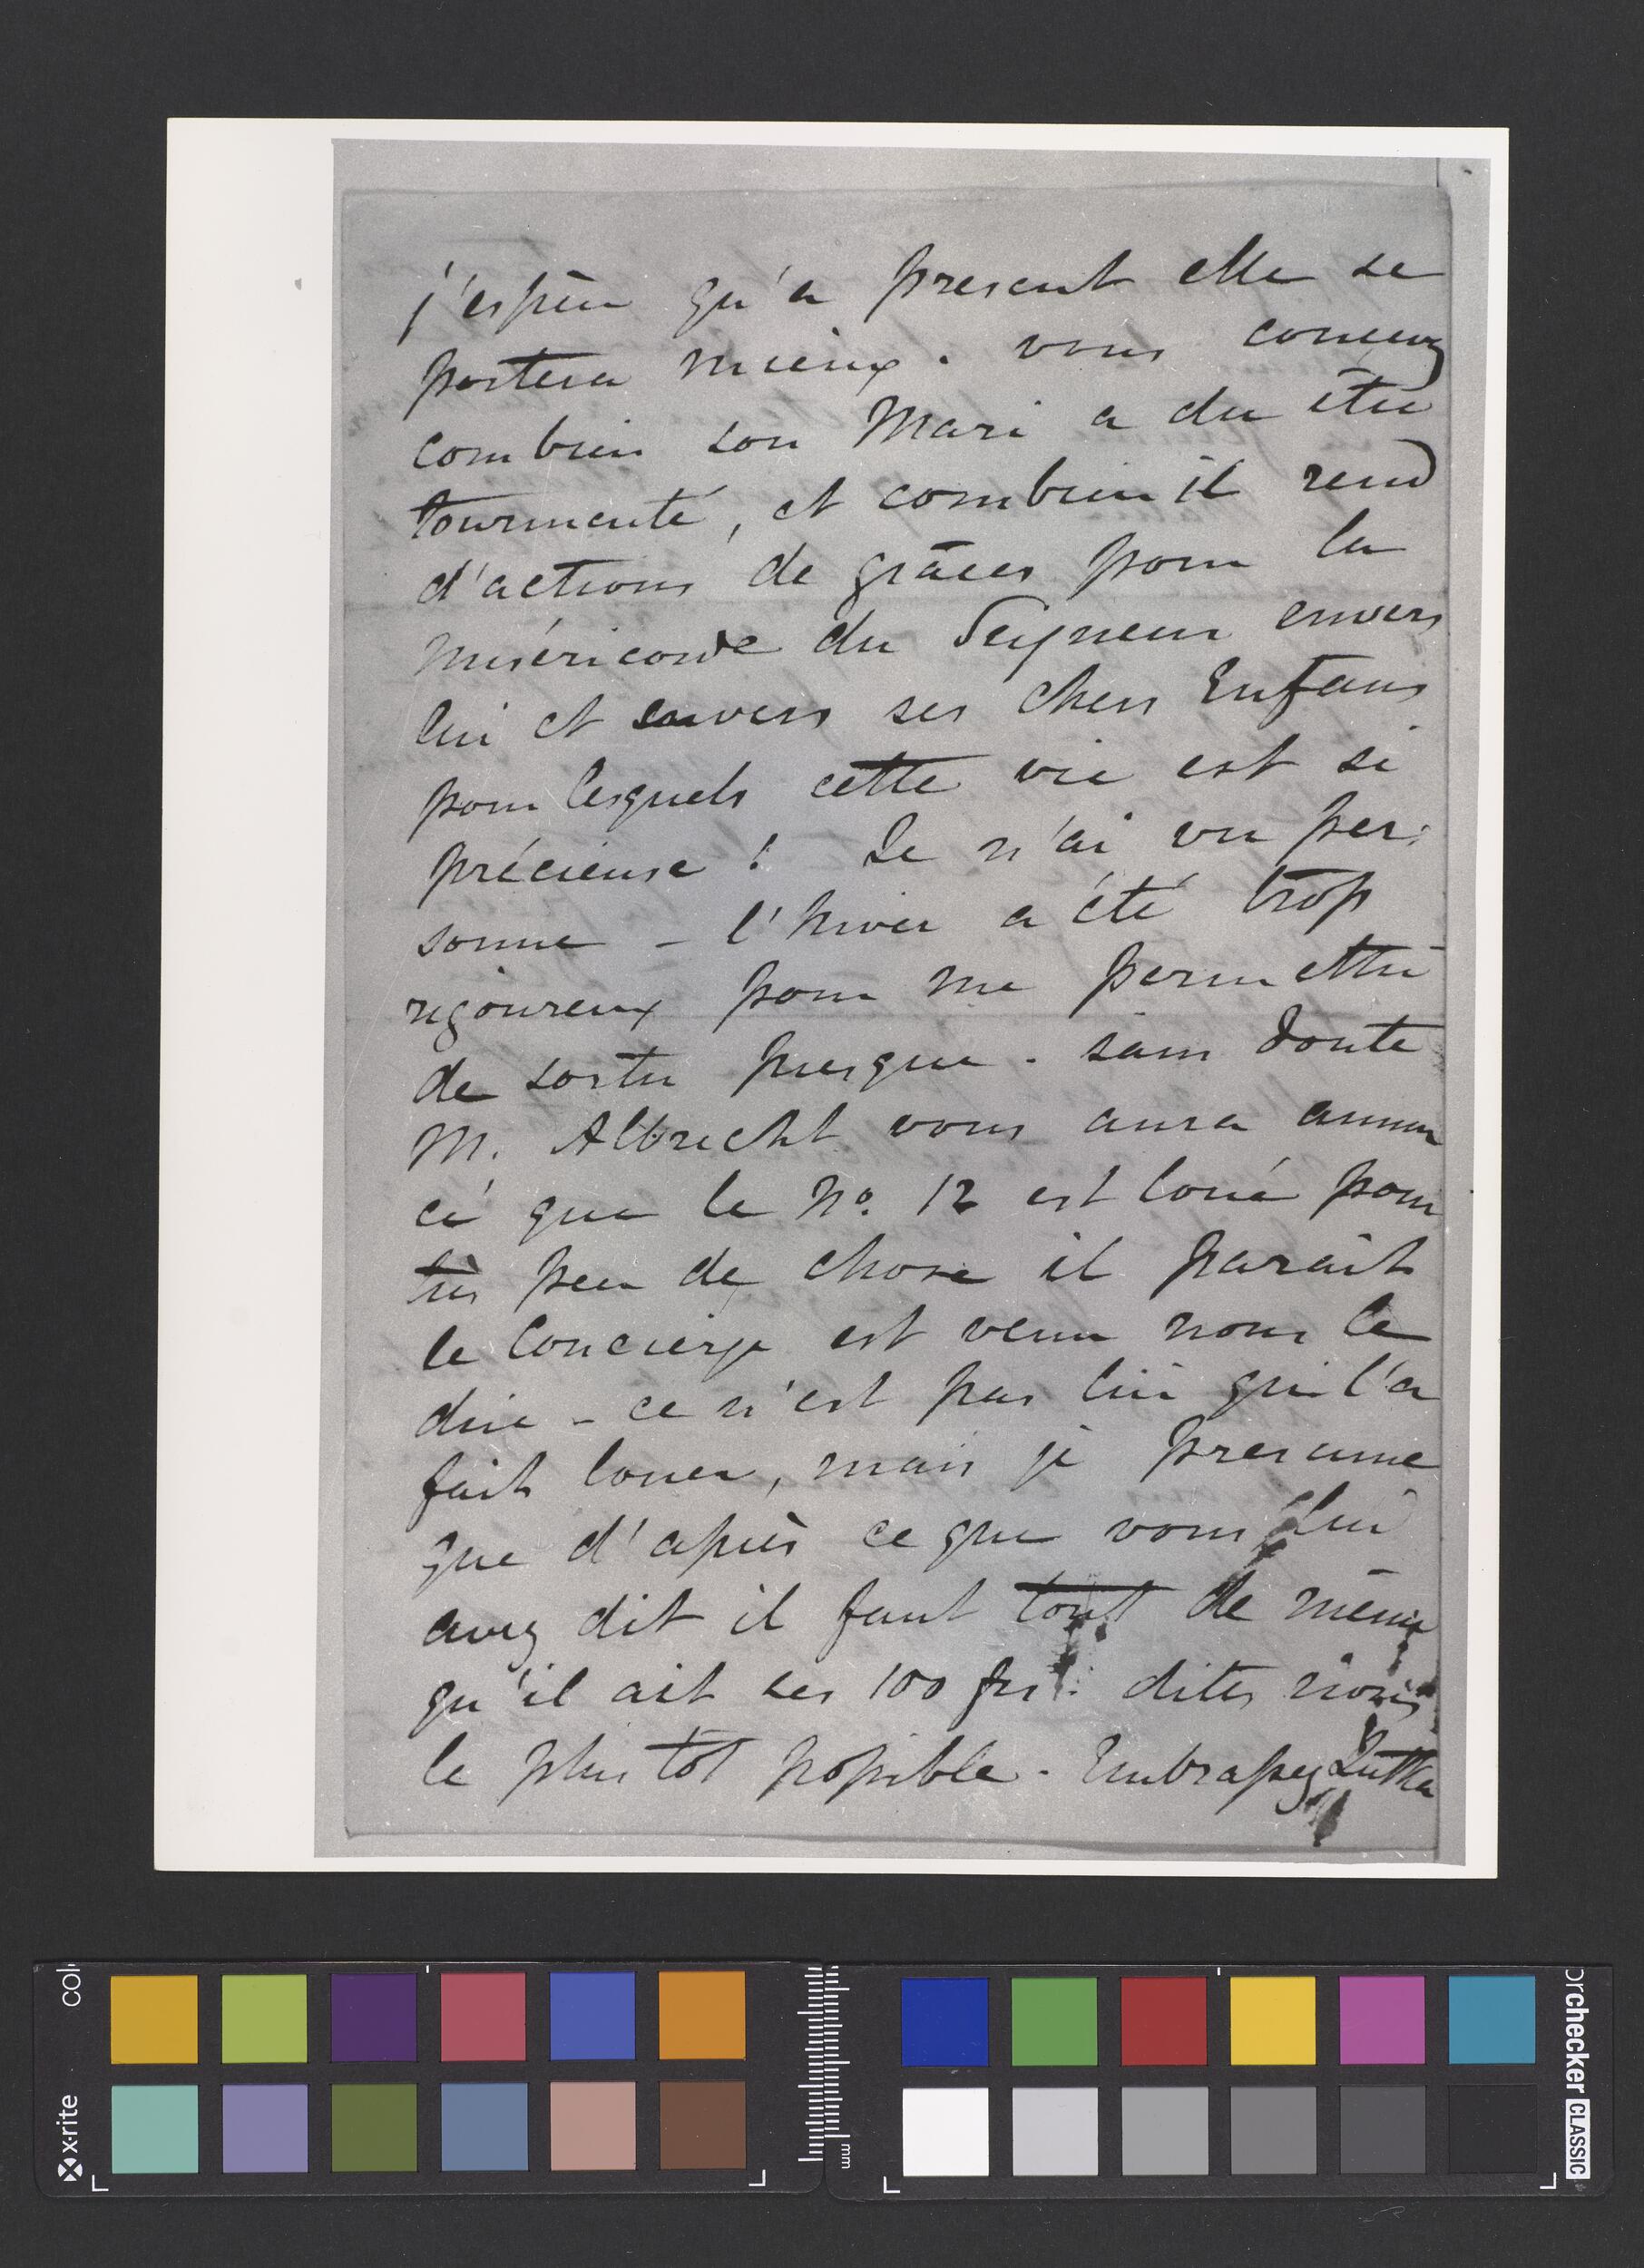 j'espère qu'a present elle se
portera mieux. vous concevez
combien son Mari a du être
tourmenté, et combien il rend
d'actions de grâces pour la
miséricorde du Seigneur envers
lui et envers ses chers Enfans
pour lesquels cette vie est si
précieuse ! Je n'ai vu per:
sonne - l'hiver a été trop
rigoureux pour me permettre
de sortir presque. sans doute
M. Albrecht vous aura annon
cé que le No. 12 est loué pour
très peu de chose il parait
le Concierge est venu nous le
dire - ce n'est pas lui qui l'a
fait louer, mais je presume
que d'après ce que vous lui
avez dit il faut tout de même
qu'il ait ses 100 frs: dites nous
le plus tôt possible. Embrassez
col
x-rite
mm
orchecker CLASSIC